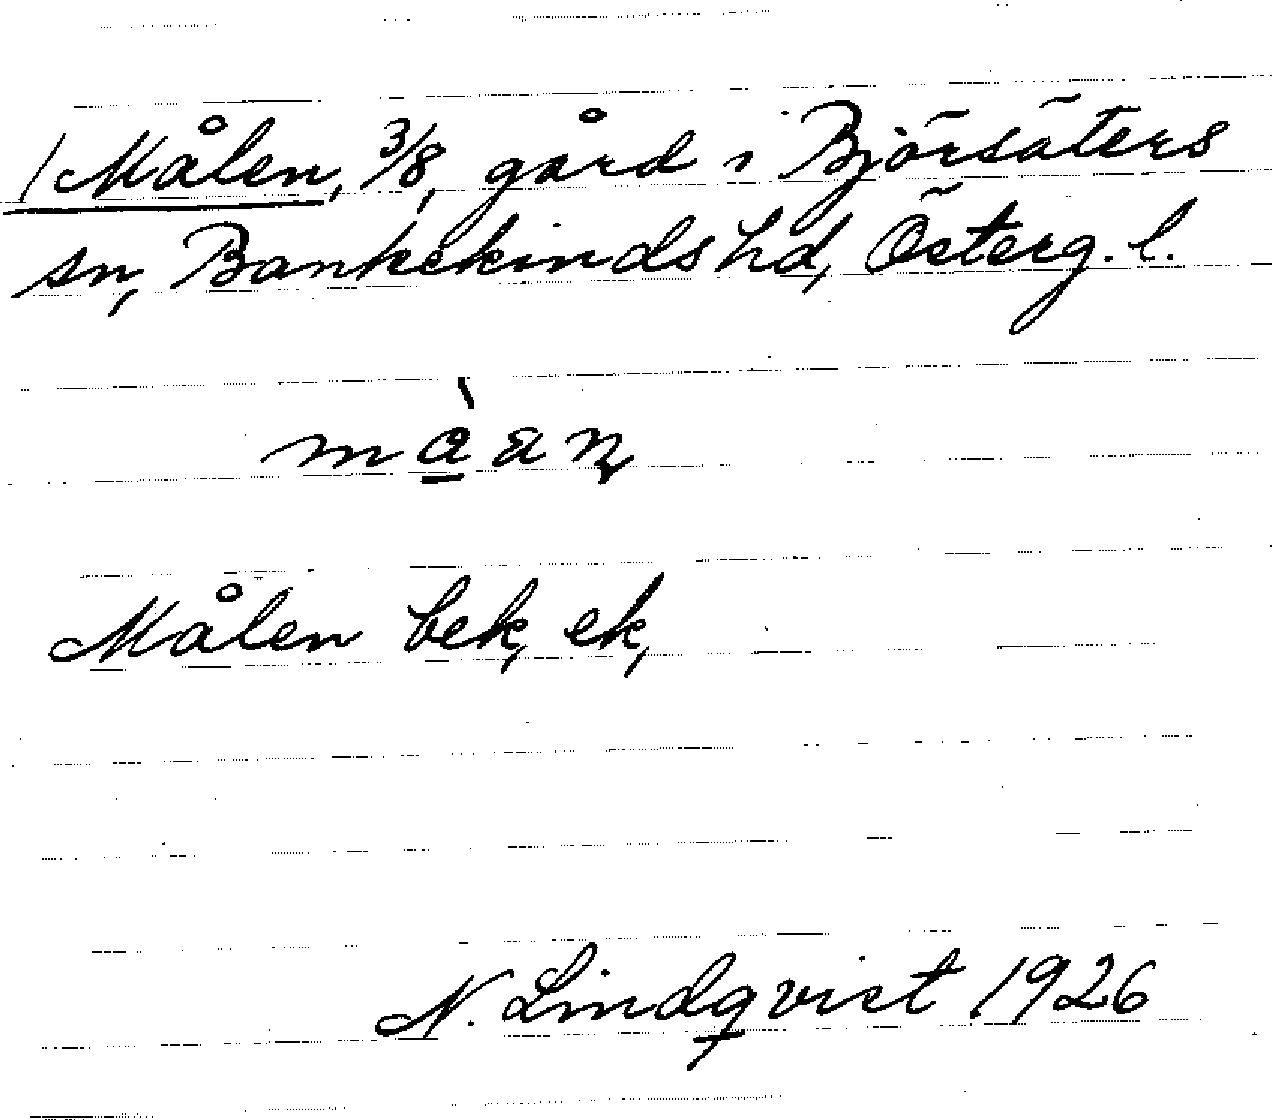 / Målen, 3/8, gård i Björsäters
sn, Bankekinds hd, Österg. l.
Målen bek, ek,
N. Lindqvist 1926